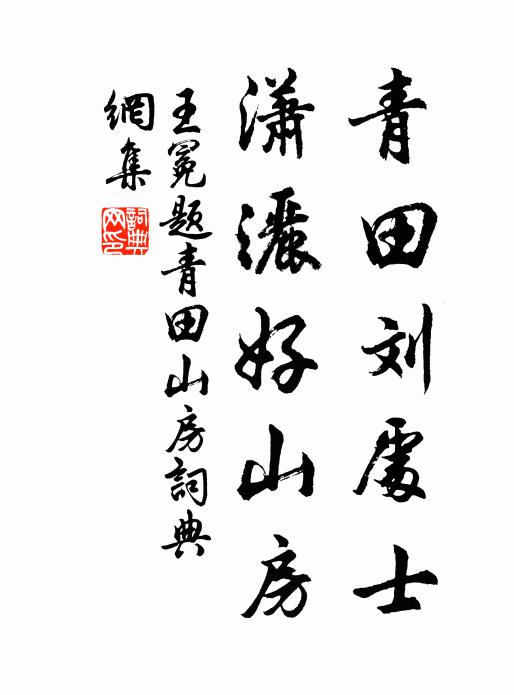 青田刘處士
瀟灑好山房
王冕題青田山房詞典
網集
詞典網印